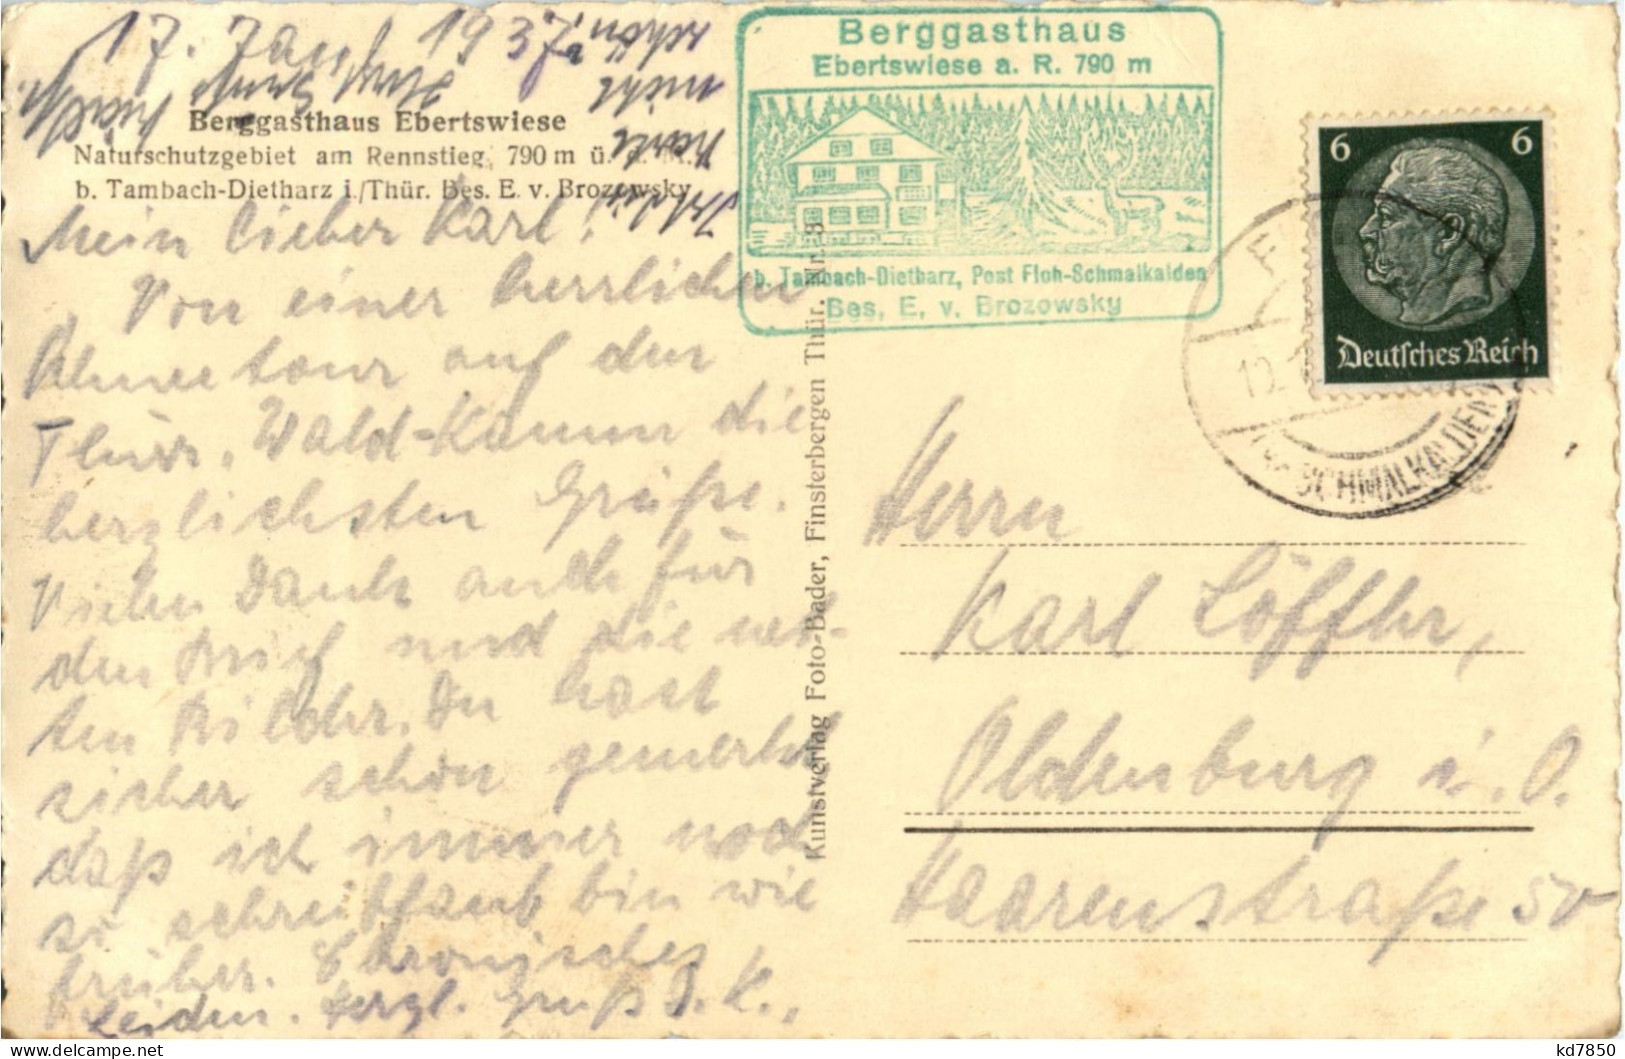 17. Jan. 1937.
Berggasthaus Ebertswiese
Naturschutzgebiet am Rennstieg, 790 m ü.
b. Tambach-Dietharz i./Thür. Bes. E. v. Brozowsky
Mein lieber Karl!
Von einer herrlichen
Schneetour auf dem
Thür. Wald-Kamm die
herzlichsten Grüße.
Vielen Dank auch für
den Brief und die net-
ten Bilder. Du hast
sicher schon gemerkt
daß ich immer noch
so schreibfaul bin wie
früher. Chronisches
Leiden. Herzl. Gruß J. K.,
schön
nicht
Karte
Ist die
Herzl. Gruß
Berggasthaus
Ebertswiese a. R. 790 m
b. Tambach-Dietharz, Post Floh-Schmalkalden
Bes. E. v. Brozowsky
Kunstverlag Foto-Bader, Finsterbergen Thür. Nr.
6 6
Deutsches Reich
SCHMALKALDEN
Herrn
Karl Löffler,
Oldenburg i. O.
Haarenstraße 50
kd7850